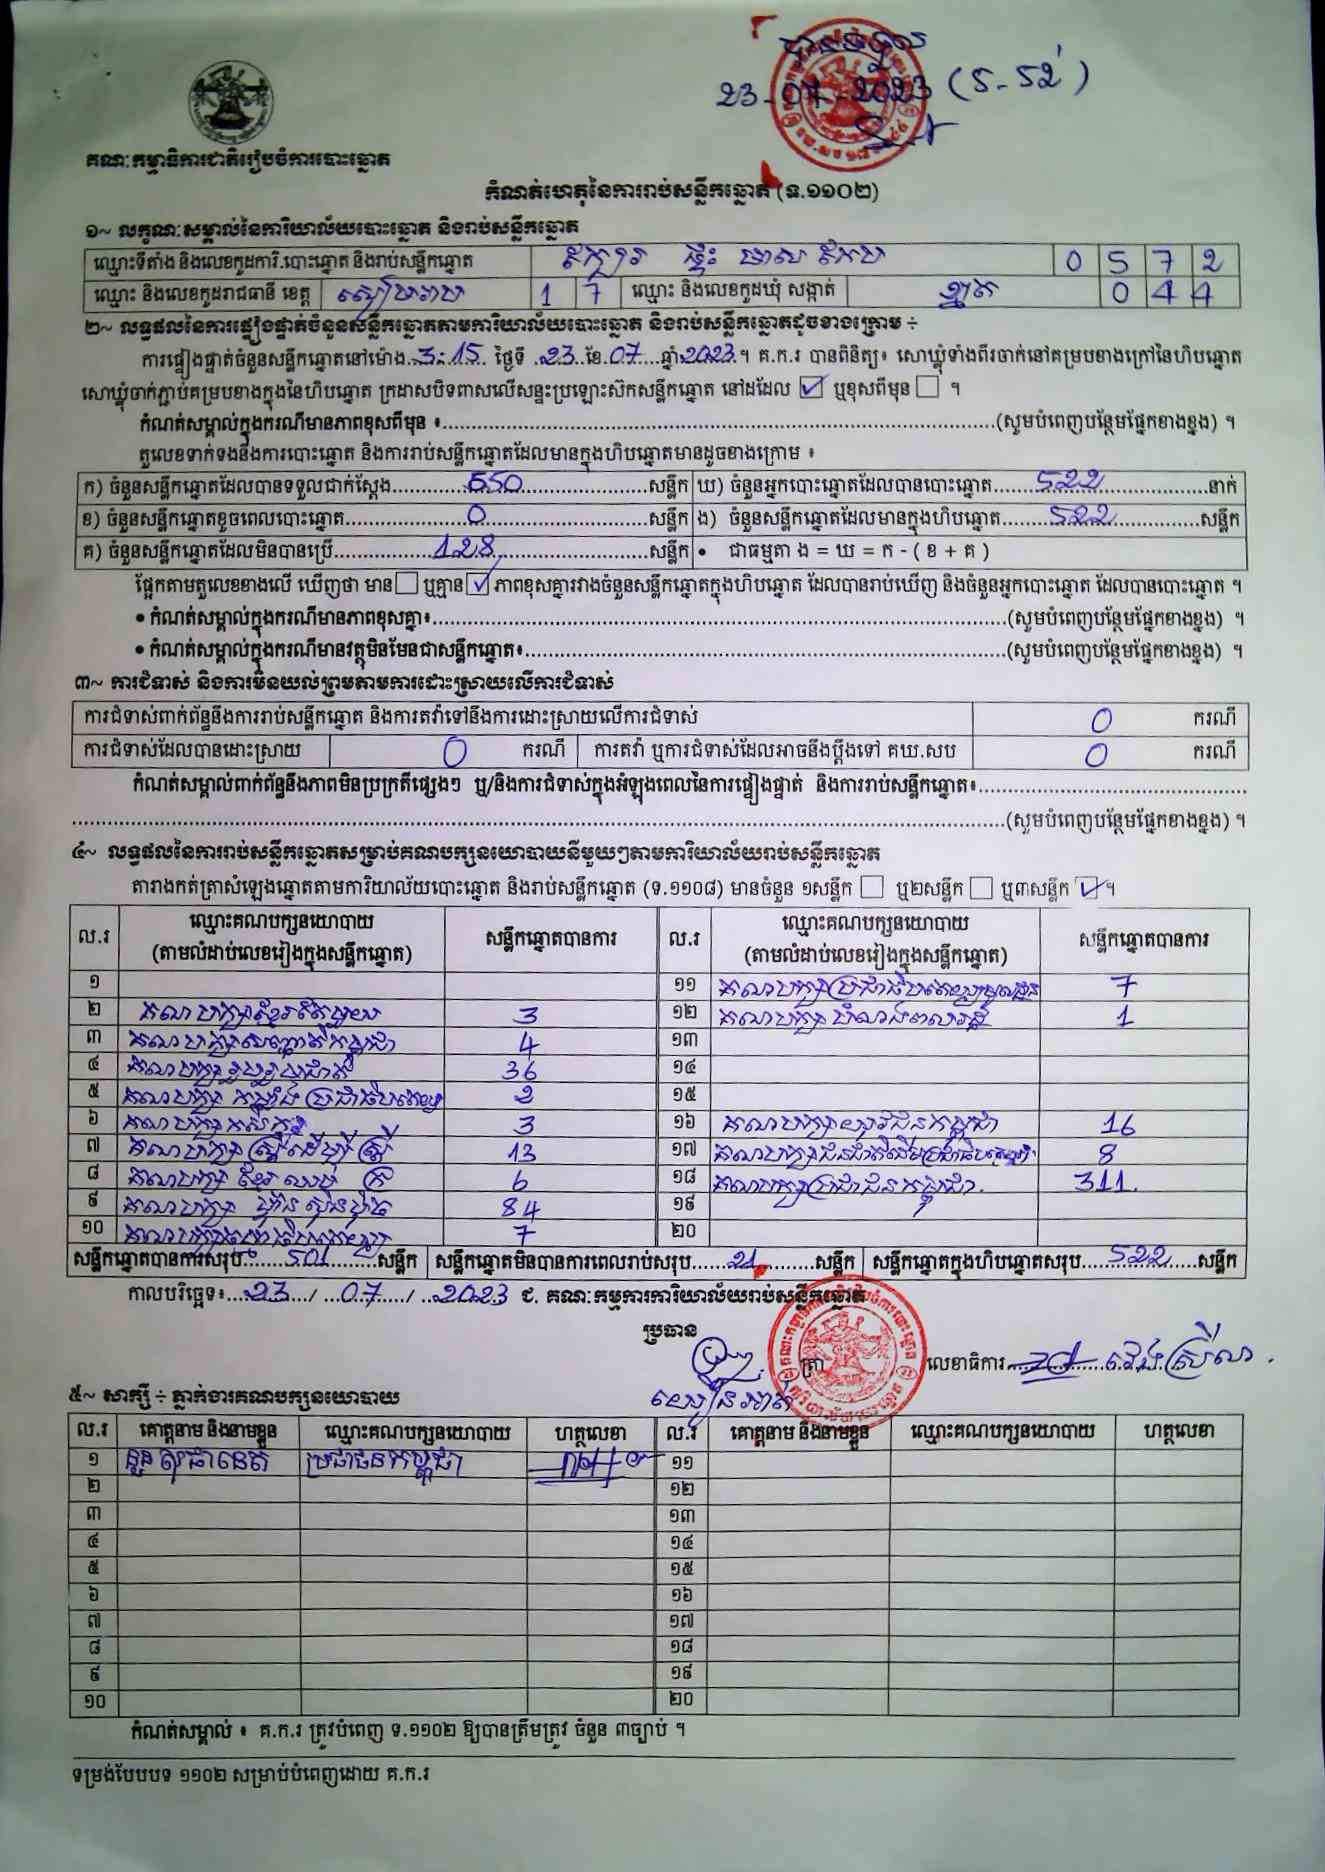 បានទទួល
23-07-2023 (5-52)
គណៈកម្មាធិការជាតិរៀបចំការបោះឆ្នោត
កំណត់ហេតុនៃការរាប់សន្លឹកឆ្នោត (ទ.១១០២)
១~ លក្ខណៈសម្គាល់នៃការិយាល័យបោះឆ្នោត និងរាប់សន្លឹកឆ្នោត
ឈ្មោះទីតាំង និងលេខកូដការិ.បោះឆ្នោត និងរាប់សន្លឹកឆ្នោត 0 5 7 2
ឈ្មោះ និងលេខកូដរាជធានី ខេត្ត សៀមរាប 1 7 ឈ្មោះ និងលេខកូដឃុំ សង្កាត់ 0 4 4
២~ លទ្ធផលនៃការផ្ទៀងផ្ទាត់ចំនួនសន្លឹកឆ្នោតតាមការិយាល័យបោះឆ្នោត និងរាប់សន្លឹកឆ្នោតដូចខាងក្រោម ÷
ការផ្ទៀងផ្ទាត់ចំនួនសន្លឹកឆ្នោតនៅម៉ោង 3:15 ថ្ងៃទី 23 ខែ 07 ឆ្នាំ 2023 ។ គ.ក.រ បានពិនិត្យ៖ សោឃ្លុំទាំងពីរចាក់នៅគម្របខាងក្រៅនៃហិបឆ្នោត
សោឃ្លុំចាក់ភ្ជាប់គម្របខាងក្នុងនៃហិបឆ្នោត ក្រដាសបិទពាសលើសន្ទះប្រឡោះស៊កសន្លឹកឆ្នោត នៅដដែល ☑ ឬខុសពីមុន ☐ ។
កំណត់សម្គាល់ក្នុងករណីមានភាពខុសពីមុន ៖..........(សូមបំពេញបន្ថែមផ្នែកខាងខ្នង) ។
តួលេខទាក់ទងនឹងការបោះឆ្នោត និងការរាប់សន្លឹកឆ្នោតដែលមានក្នុងហិបឆ្នោតមានដូចខាងក្រោម ៖
ក) ចំនួនសន្លឹកឆ្នោតដែលបានទទួលជាក់ស្តែង 650 សន្លឹក ឃ) ចំនួនអ្នកបោះឆ្នោតដែលបានបោះឆ្នោត 522 នាក់
ខ) ចំនួនសន្លឹកឆ្នោតខូចពេលបោះឆ្នោត 0 សន្លឹក ង) ចំនួនសន្លឹកឆ្នោតដែលមានក្នុងហិបឆ្នោត 522 សន្លឹក
គ) ចំនួនសន្លឹកឆ្នោតដែលមិនបានប្រើ 128 សន្លឹក • ជាធម្មតា ង = ឃ = ក - ( ខ + គ )
ផ្អែកតាមតួលេខខាងលើ ឃើញថា មាន ☐ ឬគ្មាន ☑ ភាពខុសគ្នារវាងចំនួនសន្លឹកឆ្នោតក្នុងហិបឆ្នោត ដែលបានរាប់ឃើញ និងចំនួនអ្នកបោះឆ្នោត ដែលបានបោះឆ្នោត ។
• កំណត់សម្គាល់ក្នុងករណីមានភាពខុសគ្នា៖..........(សូមបំពេញបន្ថែមផ្នែកខាងខ្នង) ។
• កំណត់សម្គាល់ក្នុងករណីមានវត្ថុមិនមែនជាសន្លឹកឆ្នោត៖..........(សូមបំពេញបន្ថែមផ្នែកខាងខ្នង) ។
៣~ ការជំទាស់ និងការមិនយល់ព្រមតាមការដោះស្រាយលើការជំទាស់
ការជំទាស់ពាក់ព័ន្ធនឹងការរាប់សន្លឹកឆ្នោត និងការតវ៉ាទៅនឹងការដោះស្រាយលើការជំទាស់ 0 ករណី
ការជំទាស់ដែលបានដោះស្រាយ 0 ករណី ការតវ៉ា ឬការជំទាស់ដែលអាចនឹងប្តឹងទៅ គឃ.សប 0 ករណី
កំណត់សម្គាល់ពាក់ព័ន្ធនឹងភាពមិនប្រក្រតីផ្សេងៗ ឬ/និងការជំទាស់ក្នុងអំឡុងពេលនៃការផ្ទៀងផ្ទាត់ និងការរាប់សន្លឹកឆ្នោត៖..........
..........(សូមបំពេញបន្ថែមផ្នែកខាងខ្នង) ។
៤~ លទ្ធផលនៃការរាប់សន្លឹកឆ្នោតសម្រាប់គណបក្សនយោបាយនីមួយៗតាមការិយាល័យរាប់សន្លឹកឆ្នោត
តារាងកត់ត្រាសំឡេងឆ្នោតតាមការិយាល័យបោះឆ្នោត និងរាប់សន្លឹកឆ្នោត (ទ.១១០៨) មានចំនួន ១សន្លឹក ☐ ឬ២សន្លឹក ☐ ឬ៣សន្លឹក ☑ ។
ល.រ ឈ្មោះគណបក្សនយោបាយ (តាមលំដាប់លេខរៀងក្នុងសន្លឹកឆ្នោត) សន្លឹកឆ្នោតបានការ ល.រ ឈ្មោះគណបក្សនយោបាយ (តាមលំដាប់លេខរៀងក្នុងសន្លឹកឆ្នោត) សន្លឹកឆ្នោតបានការ
១ ១១ គណបក្សប្រជាធិបតេយ្យមូលដ្ឋាន 7
២ គណបក្សខ្មែរតែមួយ 3 ១២ គណបក្ស 1
៣ គណបក្សសញ្ជាតិកម្ពុជា 4 ១៣
៤ គណបក្សរួបរួមជាតិ 36 ១៤
៥ គណបក្ស កម្លាំងប្រជាធិបតេយ្យ 2 ១៥
៦ គណបក្សកសិករ 3 ១៦ គណបក្សយុវជនកម្ពុជា 16
៧ គណបក្សស្ត្រីដើម្បីស្ត្រី 13 ១៧ គណបក្សជនជាតិដើមប្រជាធិបតេយ្យ 8
៨ គណបក្ស ខ្មែរឈប់ ក្រ 6 ១៨ គណបក្សប្រជាជនកម្ពុជា 311
៩ គណបក្ស ហ៊្វុនស៊ិនប៉ិច 84 ១៩
១០ គណបក្ស 7 ២០
សន្លឹកឆ្នោតបានការសរុប 501 សន្លឹក សន្លឹកឆ្នោតមិនបានការពេលរាប់សរុប 21 សន្លឹក សន្លឹកឆ្នោតក្នុងហិបឆ្នោតសរុប 522 សន្លឹក
កាលបរិច្ឆេទ៖ 23 / 07 / 2023 ជ. គណៈកម្មការការិយាល័យរាប់សន្លឹកឆ្នោត
ប្រធាន
ត្រា លេខាធិការ
៥~ សាក្សី ÷ ភ្នាក់ងារគណបក្សនយោបាយ
ល.រ គោត្តនាម និងនាមខ្លួន ឈ្មោះគណបក្សនយោបាយ ហត្ថលេខា ល.រ គោត្តនាម និងនាមខ្លួន ឈ្មោះគណបក្សនយោបាយ ហត្ថលេខា
១ ប្រជាជនកម្ពុជា ១១
២ ១២
៣ ១៣
៤ ១៤
៥ ១៥
៦ ១៦
៧ ១៧
៨ ១៨
៩ ១៩
១០ ២០
កំណត់សម្គាល់ ៖ គ.ក.រ ត្រូវបំពេញ ទ.១១០២ ឱ្យបានត្រឹមត្រូវ ចំនួន ៣ច្បាប់ ។
ទម្រង់បែបបទ ១១០២ សម្រាប់បំពេញដោយ គ.ក.រ